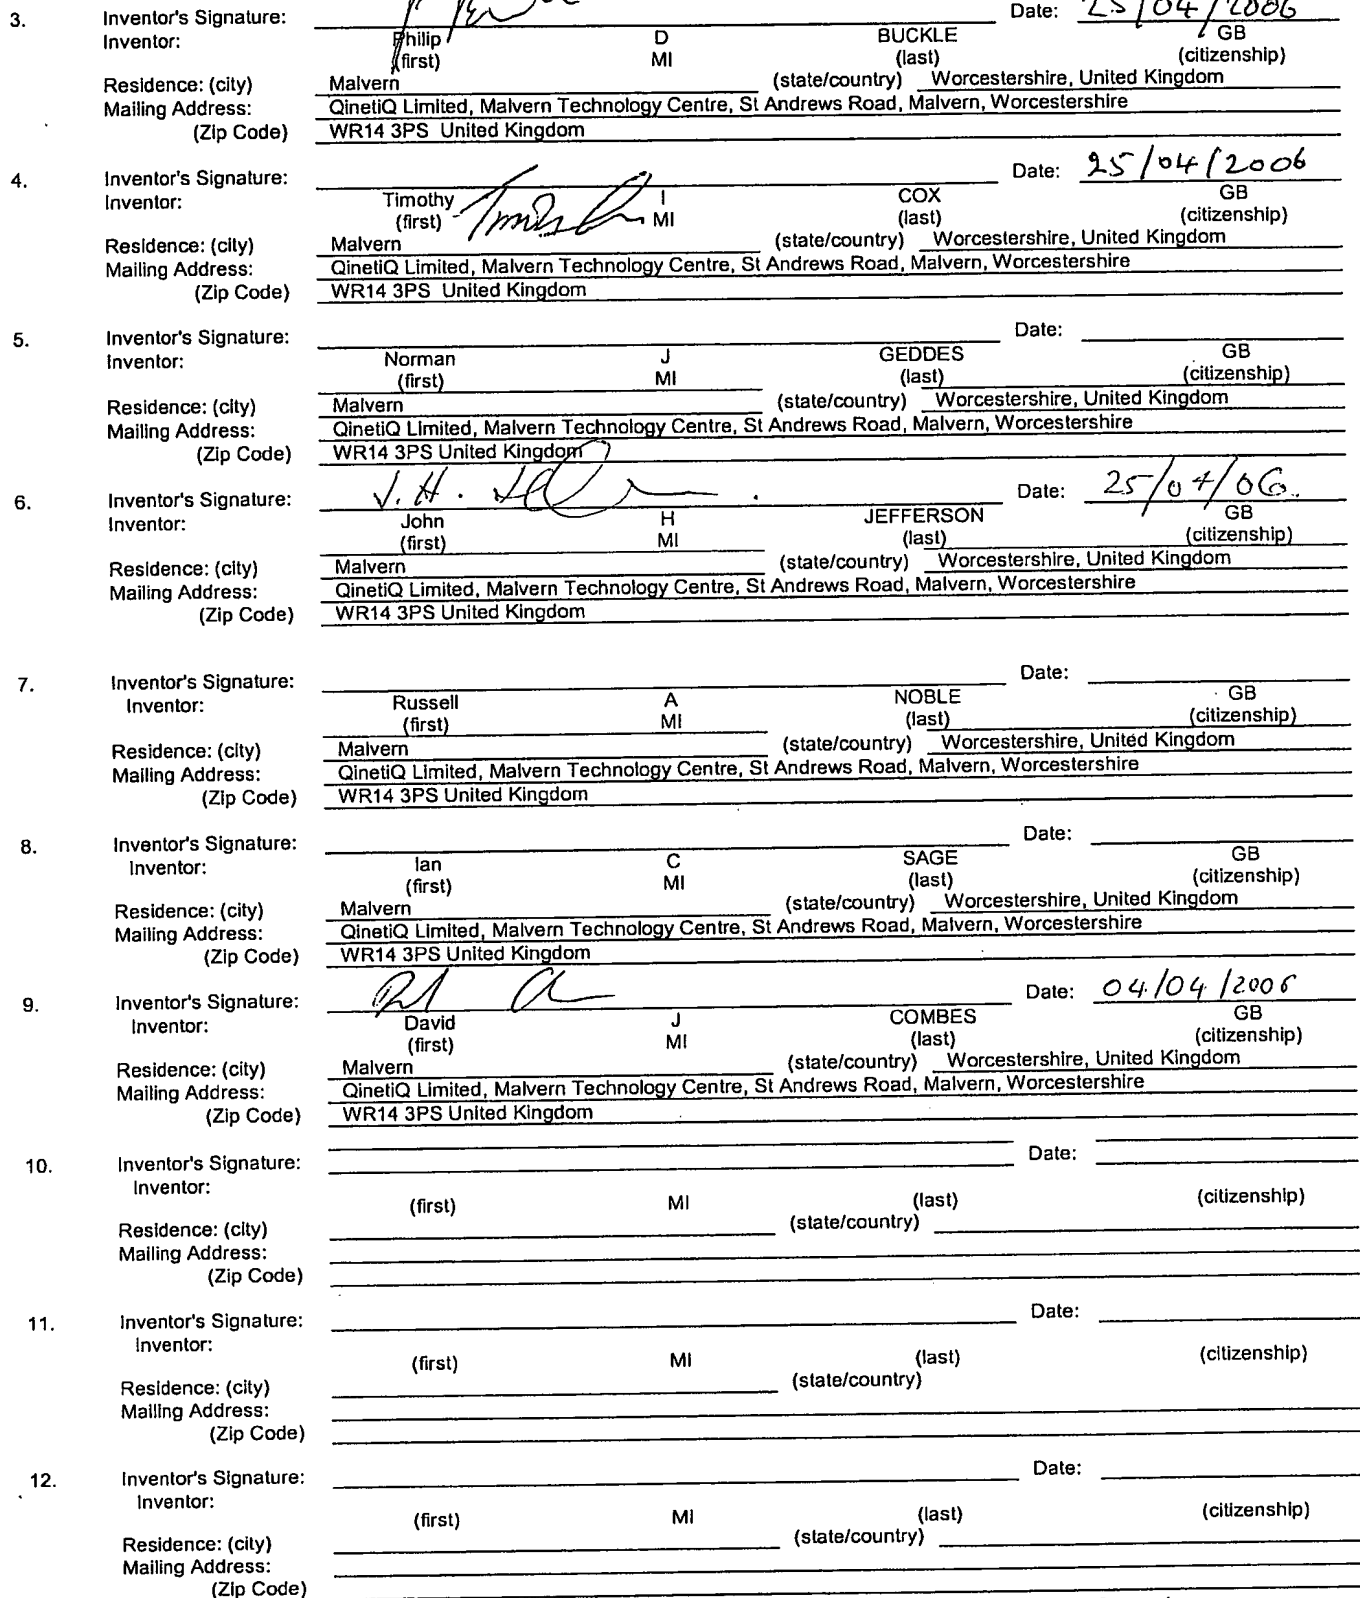 3. Inventor's Signature: Date: 25/04/2006
Inventor: Philip D BUCKLE GB
(first) MI (last) (citizenship)
Residence: (city) Malvern (state/country) Worcestershire, United Kingdom
Mailing Address: QinetiQ Limited, Malvern Technology Centre, St Andrews Road, Malvern, Worcestershire
(Zip Code) WR14 3PS United Kingdom
4. Inventor's Signature: Date: 25/04/2006
Inventor: Timothy I COX GB
(first) MI (last) (citizenship)
Residence: (city) Malvern (state/country) Worcestershire, United Kingdom
Mailing Address: QinetiQ Limited, Malvern Technology Centre, St Andrews Road, Malvern, Worcestershire
(Zip Code) WR14 3PS United Kingdom
5. Inventor's Signature: Date:
Inventor: Norman J GEDDES GB
(first) MI (last) (citizenship)
Residence: (city) Malvern (state/country) Worcestershire, United Kingdom
Mailing Address: QinetiQ Limited, Malvern Technology Centre, St Andrews Road, Malvern, Worcestershire
(Zip Code) WR14 3PS United Kingdom
6. Inventor's Signature: J. H. Date: 25/04/06.
Inventor: John H JEFFERSON GB
(first) MI (last) (citizenship)
Residence: (city) Malvern (state/country) Worcestershire, United Kingdom
Mailing Address: QinetiQ Limited, Malvern Technology Centre, St Andrews Road, Malvern, Worcestershire
(Zip Code) WR14 3PS United Kingdom
7. Inventor's Signature: Date:
Inventor: Russell A NOBLE GB
(first) MI (last) (citizenship)
Residence: (city) Malvern (state/country) Worcestershire, United Kingdom
Mailing Address: QinetiQ Limited, Malvern Technology Centre, St Andrews Road, Malvern, Worcestershire
(Zip Code) WR14 3PS United Kingdom
8. Inventor's Signature: Date:
Inventor: Ian C SAGE GB
(first) MI (last) (citizenship)
Residence: (city) Malvern (state/country) Worcestershire, United Kingdom
Mailing Address: QinetiQ Limited, Malvern Technology Centre, St Andrews Road, Malvern, Worcestershire
(Zip Code) WR14 3PS United Kingdom
9. Inventor's Signature: Date: 04/04/2006
Inventor: David J COMBES GB
(first) MI (last) (citizenship)
Residence: (city) Malvern (state/country) Worcestershire, United Kingdom
Mailing Address: QinetiQ Limited, Malvern Technology Centre, St Andrews Road, Malvern, Worcestershire
(Zip Code) WR14 3PS United Kingdom
10. Inventor's Signature: Date:
Inventor:
(first) MI (last) (citizenship)
Residence: (city) (state/country)
Mailing Address:
(Zip Code)
11. Inventor's Signature: Date:
Inventor:
(first) MI (last) (citizenship)
Residence: (city) (state/country)
Mailing Address:
(Zip Code)
12. Inventor's Signature: Date:
Inventor:
(first) MI (last) (citizenship)
Residence: (city) (state/country)
Mailing Address:
(Zip Code)